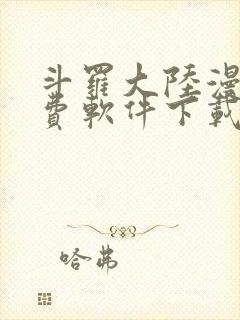 斗羅大陸漫
費軟件下載
哈弗